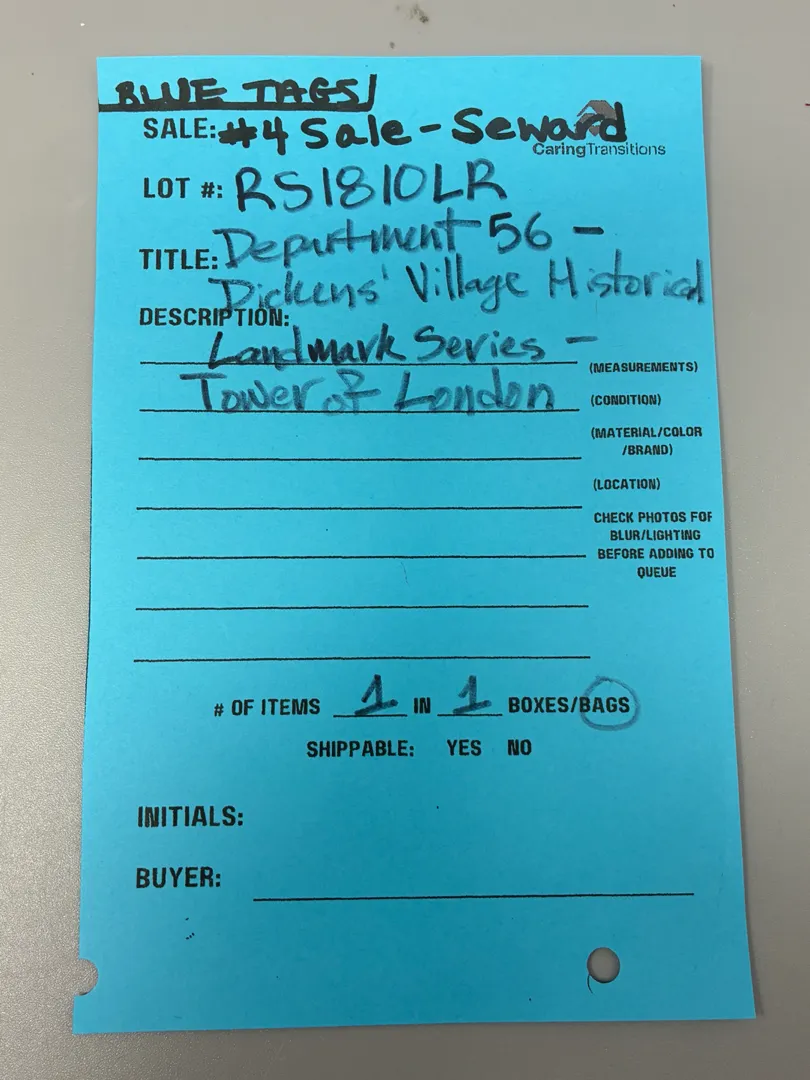 BLUE TAGS/
SALE: #4 Sale - Seward
CaringTransitions
LOT #: RS1810LR
TITLE: Department 56 -
Dickens' Village Historical
DESCRIPTION:
Landmark Series -
(MEASUREMENTS)
Tower of London
(CONDITION)
(MATERIAL/COLOR
/BRAND)
(LOCATION)
CHECK PHOTOS FOR
BLUR/LIGHTING
BEFORE ADDING TO
QUEUE
# OF ITEMS 1 IN 1 BOXES/BAGS
SHIPPABLE: YES NO
INITIALS:
BUYER: